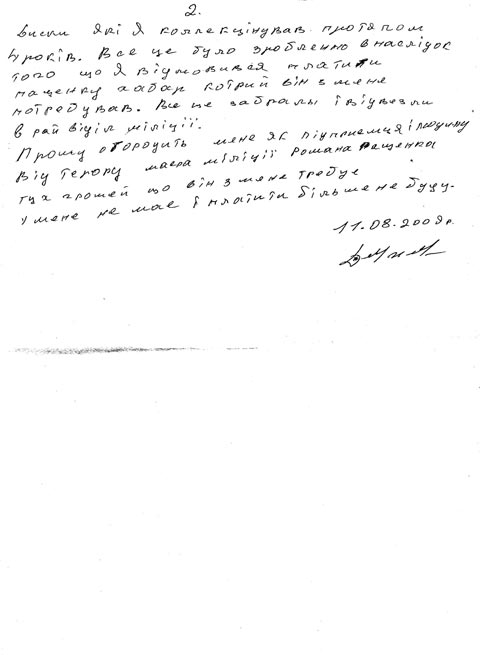 2.
диски які я коллекцінував протягом
4 років. Все це було зробленно внаслідок
того що я відмовився платити
пащенку хабар котрий він з мене
потребував. Все це забрали і відвезли
в рай відціл міліції.
Прошу огородить мене як підприемця і людину
від терору маера міліції Романа Пащенка
тих грошей що він з мене требує
у мене не має і платити більше не буду.
11.08.2009р.